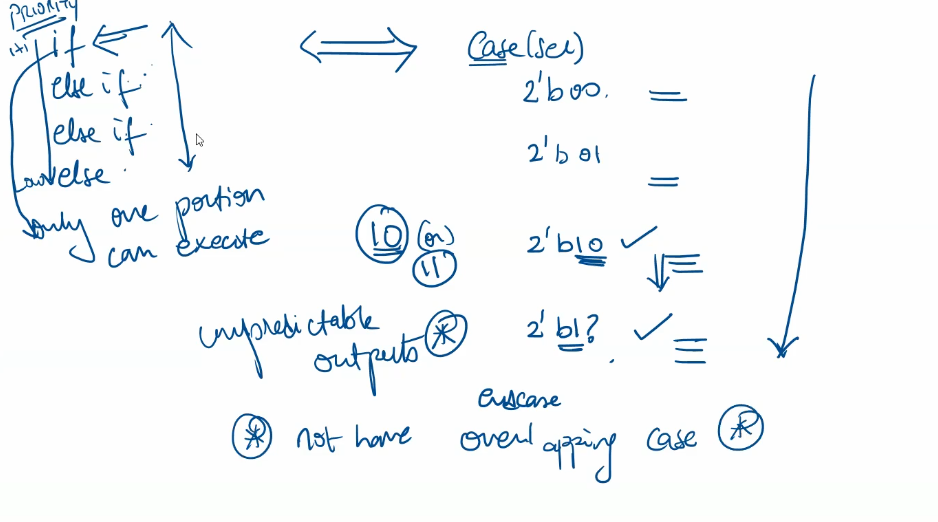 PRIORITY
if
else if
else if
else
only one portion
can execute
Case(sel)
2'b00.
2'b01
10 (or)
11
2'b10
2'b1?
unpredictable
outputs
endcase
not have overlapping case